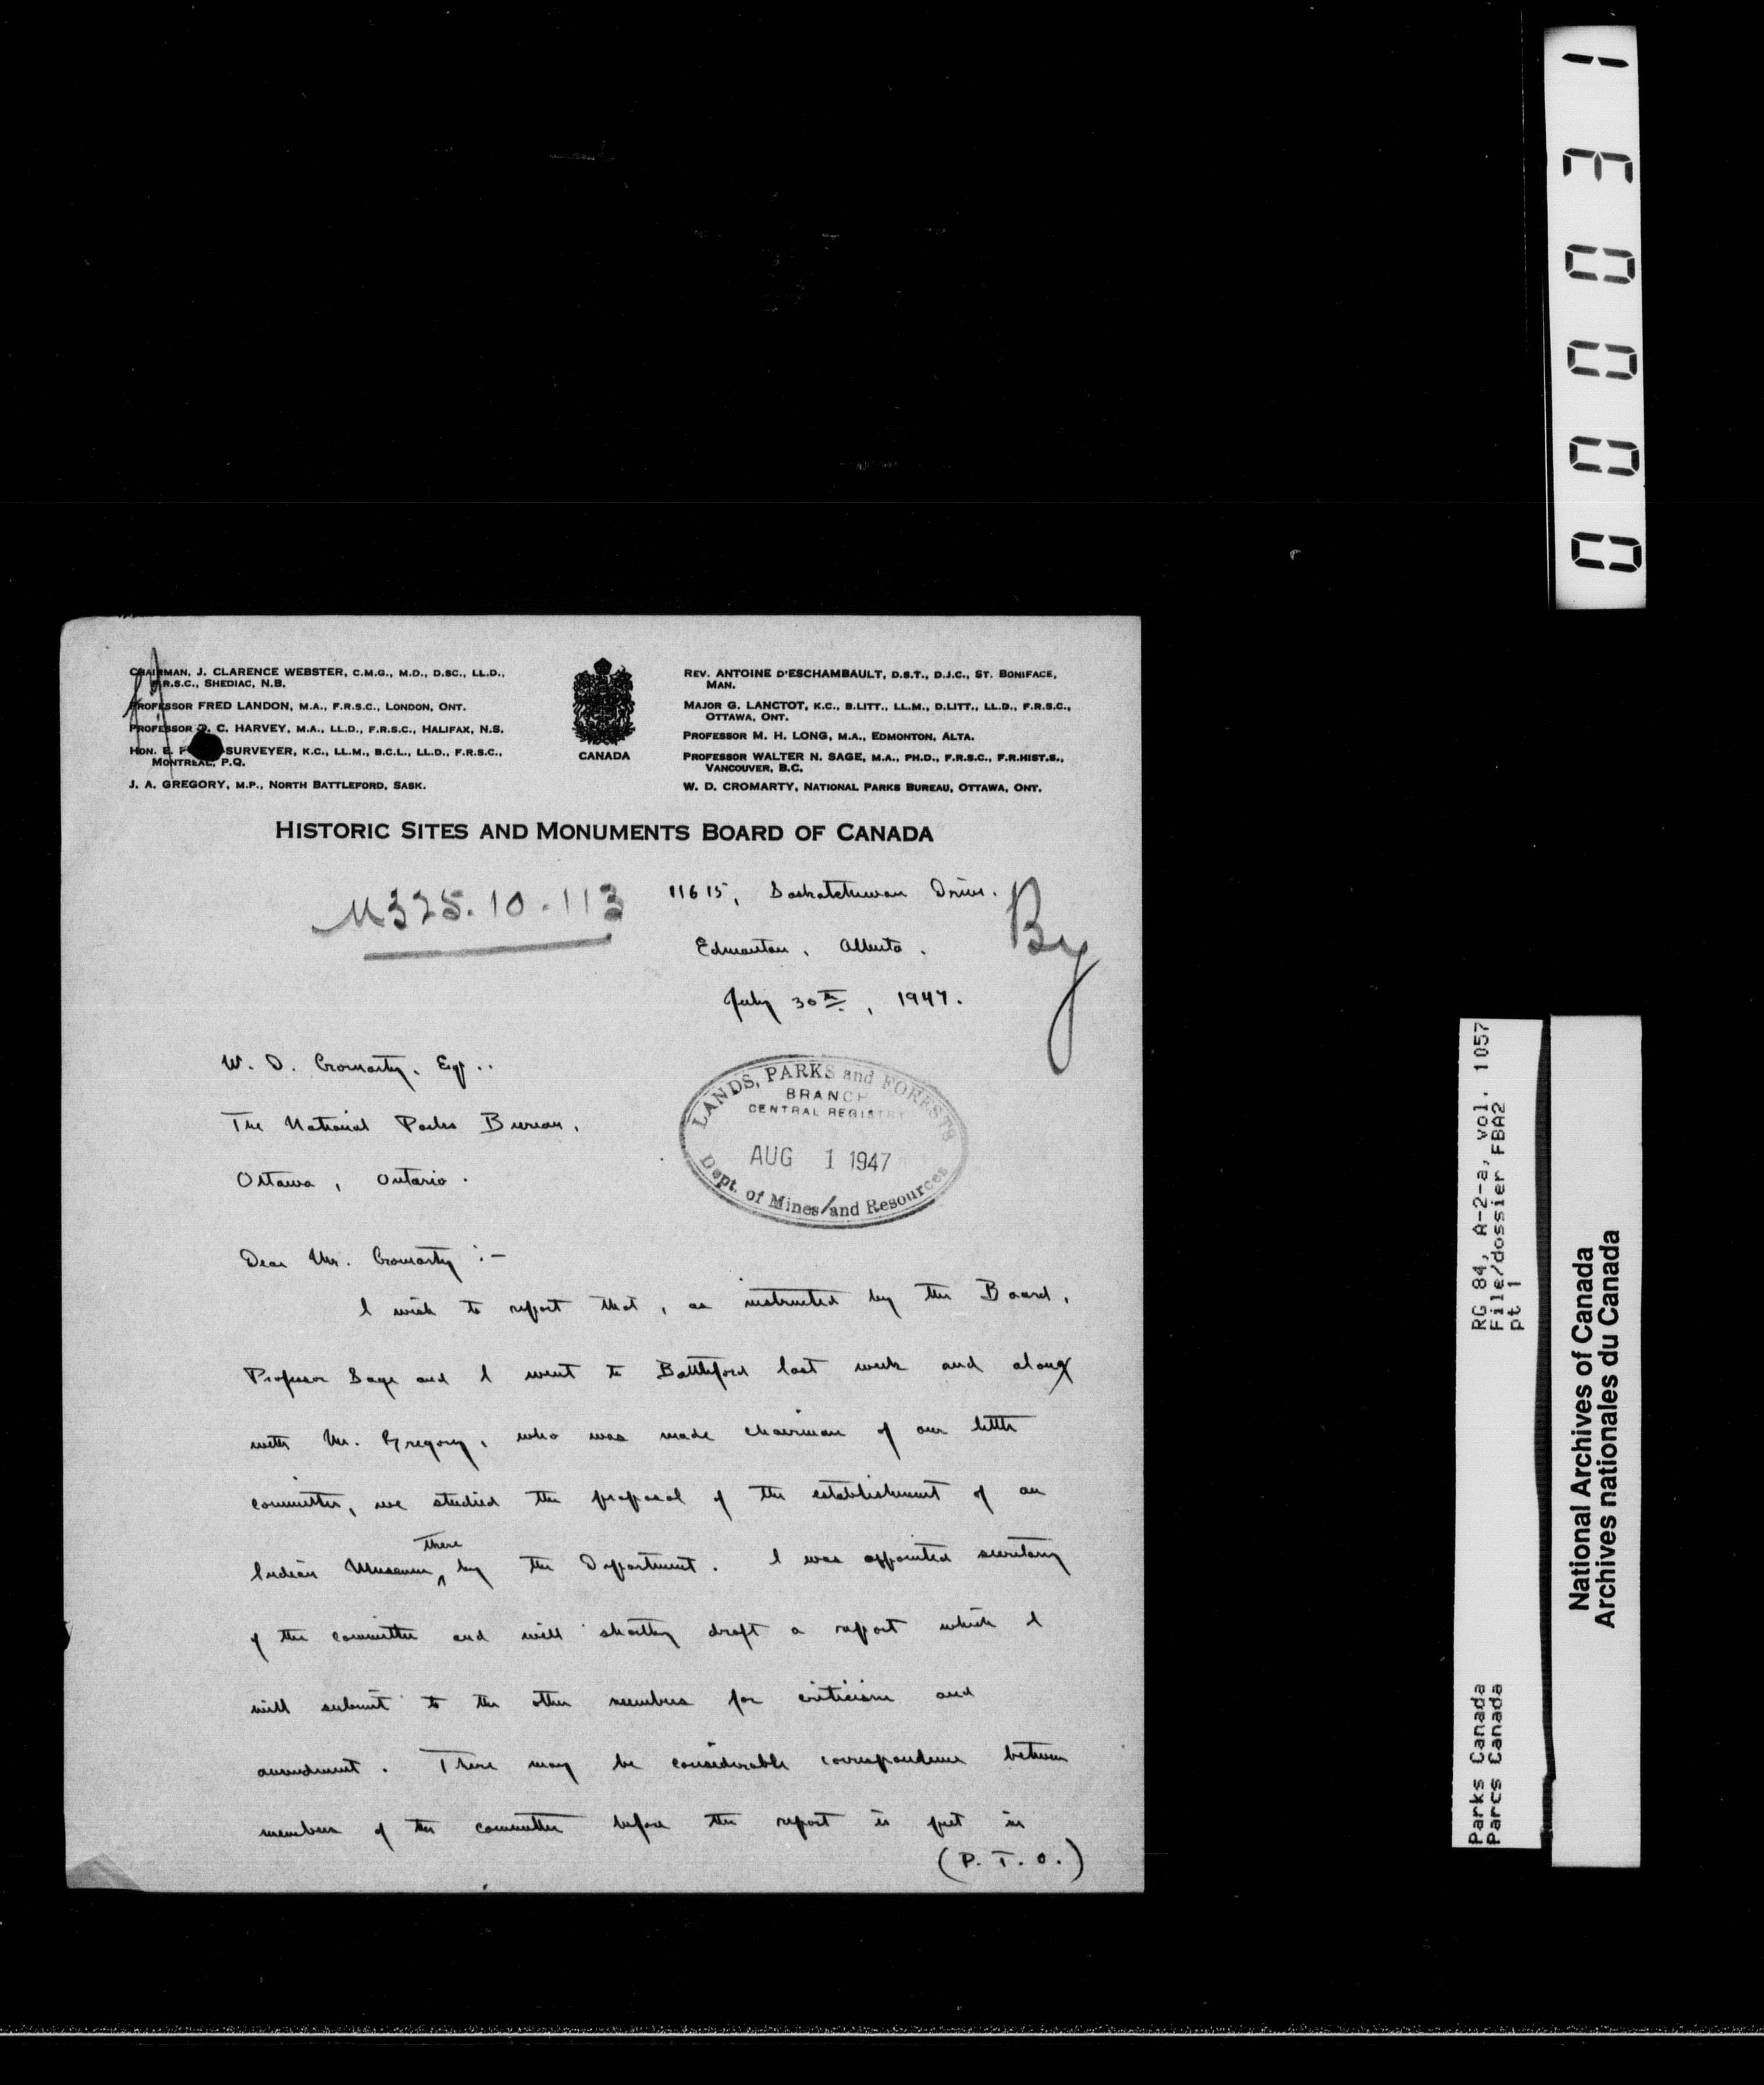 CHAIRMAN, J. CLARENCE WEBSTER, C.M.G., M.D., D.SC., LL.D.,
F.R.S.C., SHEDIAC, N.B.
PROFESSOR FRED LANDON, M.A., F.R.S.C., LONDON, ONT.
PROFESSOR D. C. HARVEY, M.A., LL.D., F.R.S.C., HALIFAX, N.S.
HON. E. F SURVEYER, K.C., LL.M., B.C.L., LL.D., F.R.S.C.,
MONTREAL, P.Q.
J. A. GREGORY, M.P., NORTH BATTLEFORD, SASK.
CANADA
REV. ANTOINE D'ESCHAMBAULT, D.S.T., D.J.C., ST. BONIFACE,
MAN.
MAJOR G. LANCTOT, K.C., B.LITT., LL.M., D.LITT., LL.D., F.R.S.C.,
OTTAWA, ONT.
PROFESSOR M. H. LONG, M.A., EDMONTON, ALTA.
PROFESSOR WALTER N. SAGE, M.A., PH.D., F.R.S.C., F.R.HIST.S.,
VANCOUVER, B.C.
W. D. CROMARTY, NATIONAL PARKS BUREAU, OTTAWA, ONT.
HISTORIC SITES AND MONUMENTS BOARD OF CANADA
M325.10.113
11615, Saskatchewan Drive.
Edmonton, Alberta.
By
July 30th, 1947.
W. D. Cromarty, Esq..
The National Parks Bureau,
Ottawa, Ontario.
LANDS, PARKS and FORESTS
BRANCH
CENTRAL REGISTRY
AUG 1 1947
Dept. of Mines and Resources
Dear Mr. Cromarty :-
I wish to report that, as instructed by the Board,
Professor Sage and I went to Battleford last week and along
with Mr. Gregory, who was made chairman of our little
committee, we studied the proposal of the establishment of an
there
Indian Museum by the Department. I was appointed secretary
of the committee and will shortly draft a report which I
will submit to the other members for criticism and
amendment. There may be considerable correspondence between
members of the committee before the report is put in
(P. T. O.)
000031
RG 84, A-2-a, vol. 1057
File/dossier FBA2
pt 1
Parks Canada
Parcs Canada
National Archives of Canada
Archives nationales du Canada